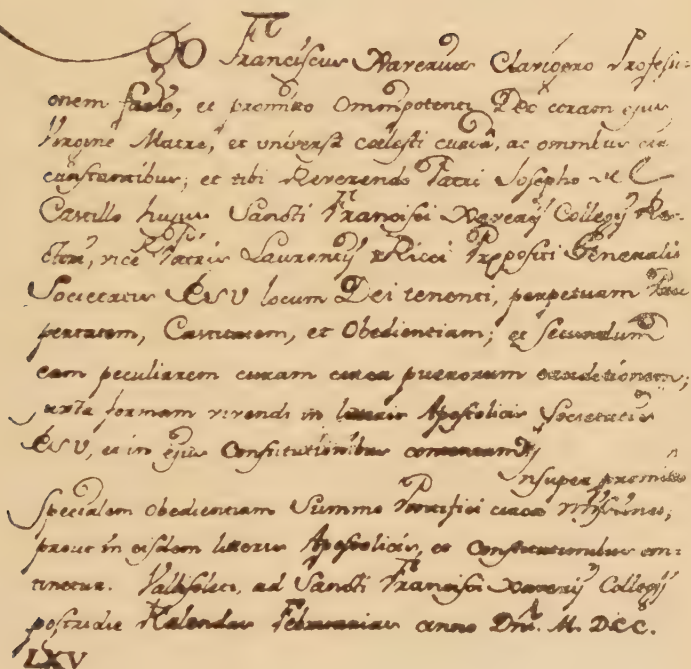 EGO Franciscus Xaverius Clavigero Professi-
onem facio, et promitto Omnipotenti Deo coram ejus
Virgine Matre, et universa cœlesti curiâ, ac omnibus cir
cunstantibus; et tibi Reverendo Patri Josepho del
Castillo hujus Sancti Francisci Xaverij Collegij Rec
ctori, vice Patris Laurentij Ricci Præpositi Generalis
Societatis IESU locum Dei tenenti, perpetuam Pau
pertatem, Castitatem, et Obedientiam; et secundum
eam peculiarem curam circa puerorum eruditionem;
juxta formam vivendi in litteris Apostolicis Societatis
IESU, et in ejus Constitutionibus contentam.
Insuper promitto
specialem Obedientiam Summo Pontifici circa Missiones,
prout in eisdem litteris Apostolicis, et Constitutionibus con-
tinetur. Vallisoleti, ad Sancti Francisci Xaverij Collegij
postridie Kalendas Februarias anno Dni. M. DCC.
LXV